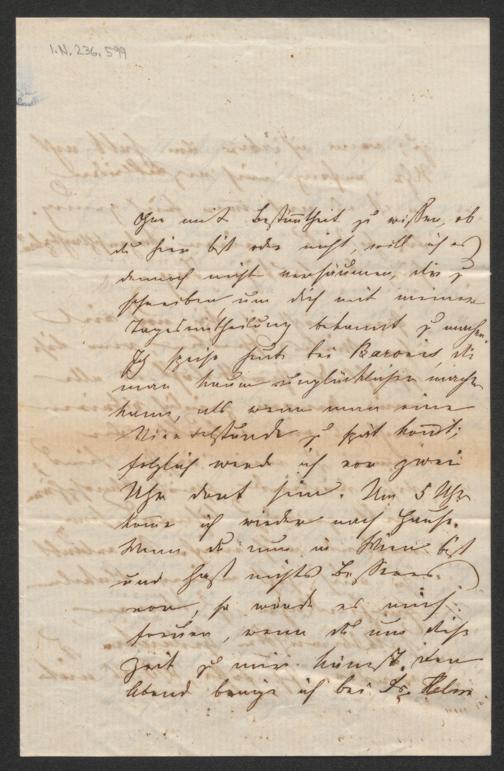 I.N. 236.599
Ohne mit Bestimmtheit zu wissen, ob
du hier bist oder nicht, will ich es
dennoch nicht versäumen, dir zu
schreiben um dich mit meiner
Tageseintheilung bekannt zu machen.
Ich speise heute bei Baronis, die
man kaum unglücklicher machen
kann, als wenn man eine
Viertelstunde zu spät kommt;
folglich werde ich vor zwei
Uhr dort sein. Um 5 Uhr
komme ich wieder nach Hause.
Wenn du nun in Wien bist
und hast nichts Besseres
vor, so würde es mich
freuen, wenn du um diese
Zeit zu mir kämst. Den
Abend bringe ich bei Dr.